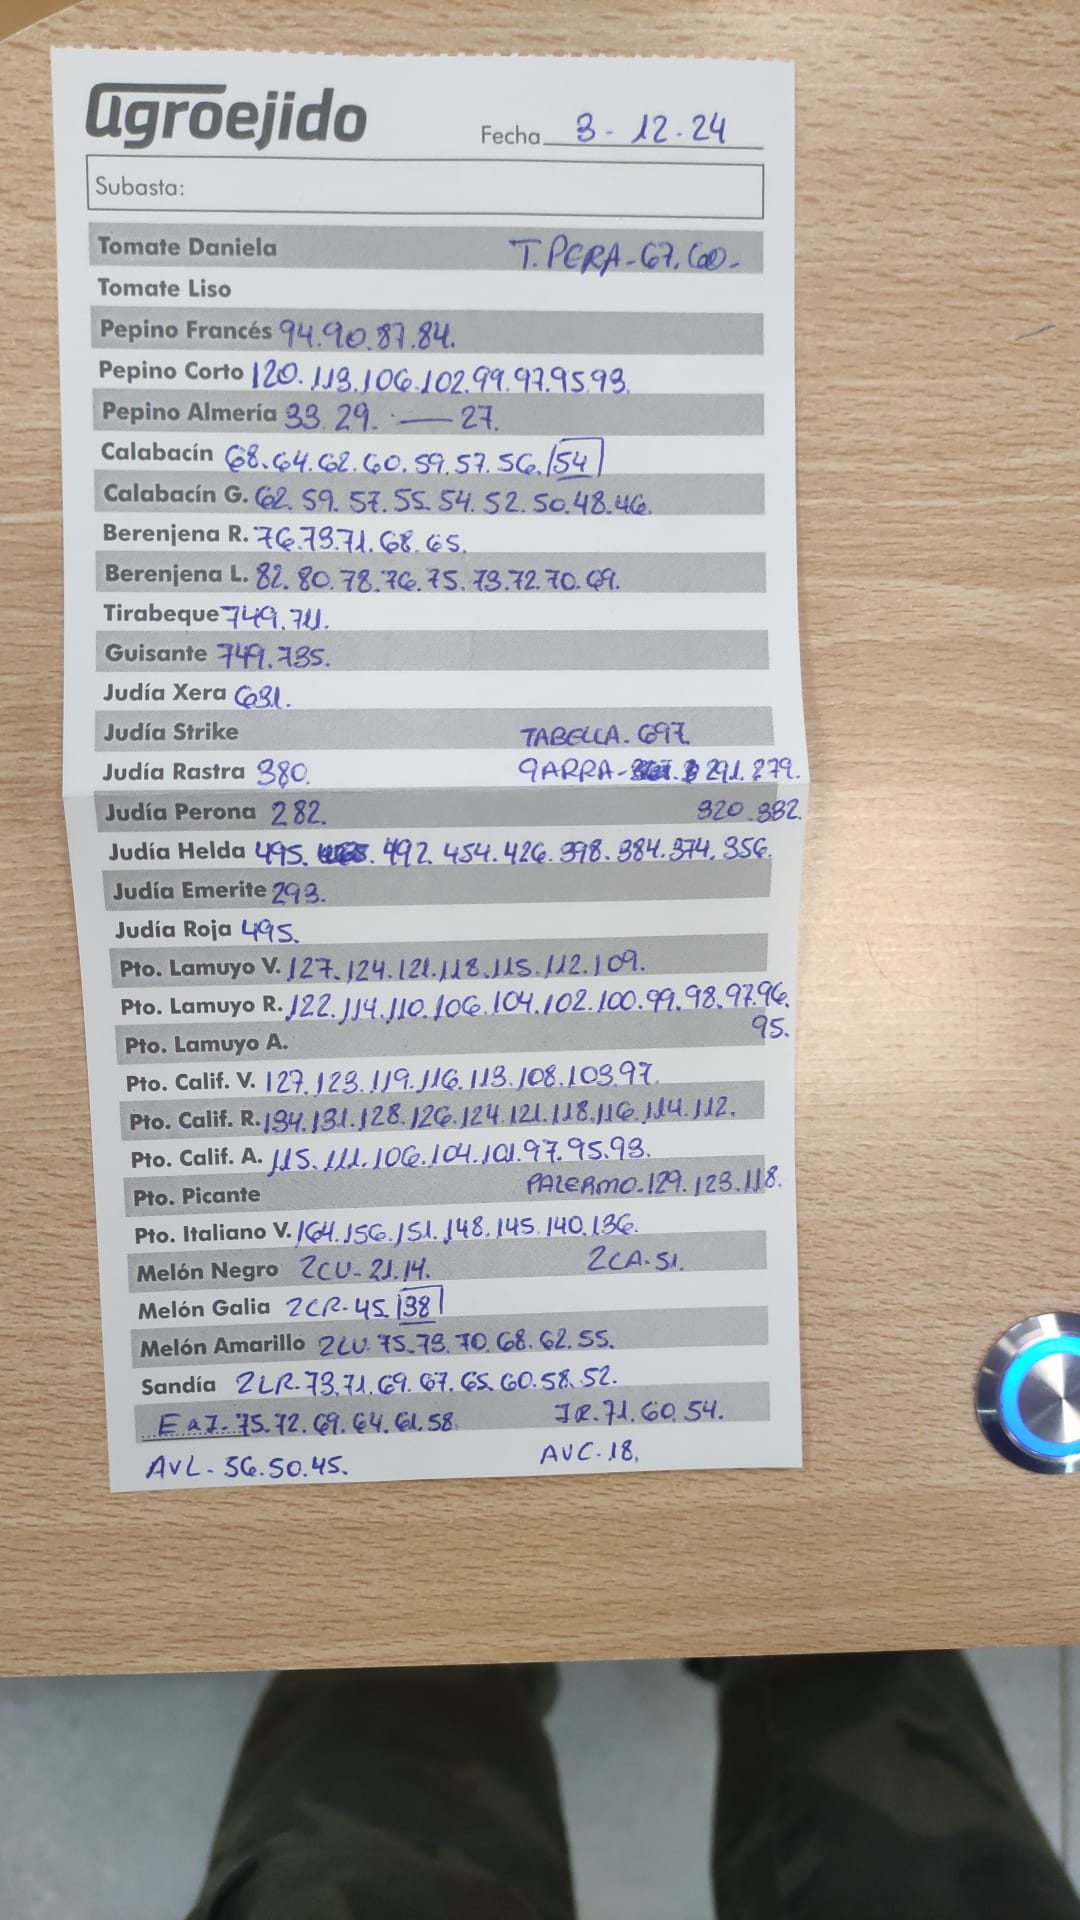 agroejido
Fecha 3-12.24
Subasta:
Tomate Daniela T. PERA-67.60-
Tomate Liso
Pepino Francés 94.90.87.84.
Pepino Corto 120.113.106.102.99.97.95.93.
Pepino Almería 33.29. — 27.
Calabacín 68.64.62.60.59.57.56.54
Calabacín G. 62.59.57.55.54.52.50.48.46.
Berenjena R. 76.73.71.68.65.
Berenjena L. 82.80.78.76.75.73.72.70.69.
Tirabeque 749.711.
Guisante 749.735.
Judía Xera 631.
Judía Strike TABELLA. 697.
Judía Rastra 380. GARRA- 291.279.
Judía Perona 282. 320.332.
Judía Helda 495. 492.454.426.398.384.374.356.
Judía Emerite 293.
Judía Roja 495.
Pto. Lamuyo V. 127.124.121.118.115.112.109.
Pto. Lamuyo R. 122.114.110.106.104.102.100.99.98.97.96.
95.
Pto. Lamuyo A.
Pto. Calif. V. 127.123.119.116.113.108.103.97.
Pto. Calif. R. 134.131.128.126.124.121.118.116.114.112.
Pto. Calif. A. 115.111.106.104.101.97.95.93.
Pto. Picante PALERMO-129.123.118.
Pto. Italiano V. 164.156.151.148.145.140.136.
Melón Negro 2CU-21.14. 2CA-51.
Melón Galia 2CR-45.38
Melón Amarillo 2LU-75.73.70.68.62.55.
Sandía 2LR-73.71.69.67.65.60.58.52.
E a J-75.72.69.64.61.58. JR.71.60.54.
AVL-56.50.45. AVC-18.